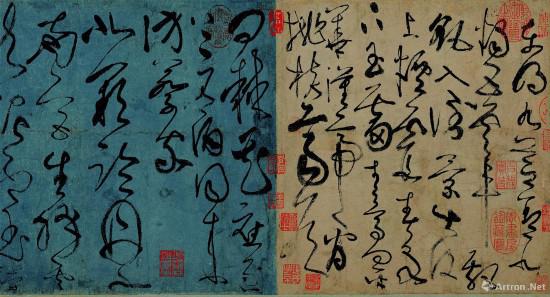 東明九芝蓋北
燭五雲車飄
飖入倒景出没
上煙霞春泉
下玉霤青鳥向金
華漢帝看
桃核齊侯
問棘花應逐
上元酒同來
訪蔡家
北闕臨丹水
南宮生絳雲
龍泥印玉
Artron.Net